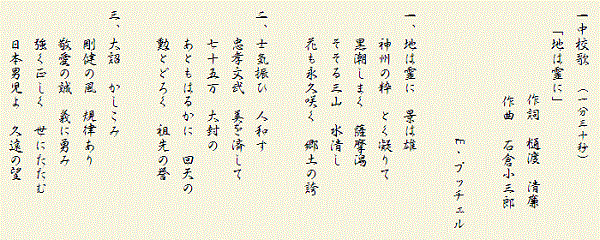 一中校歌 (一分三十秒)
「地は霊に」
作詞 樋渡 清廉
作曲 石倉小三郎
E.プッチェル
一、地は霊に 景は雄
神州の粋 とく凝りて
黒潮しまく 薩摩潟
そそる三山 水清し
花も永久咲く 郷土の誇
二、士気振ひ 人和す
忠孝文武 美を済して
七十五万 大封の
あともはるかに 回天の
勲とどろく 祖先の誉
三、大詔 かしこみ
剛健の風 規律あり
敬愛の誠 義に勇み
強く正しく 世にたたむ
日本男児よ 久遠の望